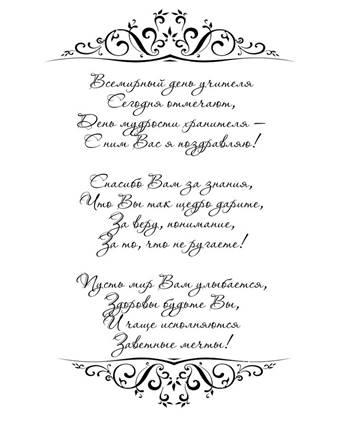 Всемирный день учителя
Сегодня отмечают,
День мудрости хранителя –
С ним Вас я поздравляю!
Спасибо Вам за знания,
Что Вы так щедро дарите,
За веру, понимание,
За то, что не ругаете!
Пусть мир Вам улыбается,
Здоровы будьте Вы,
И чаще исполняются
Заветные мечты!